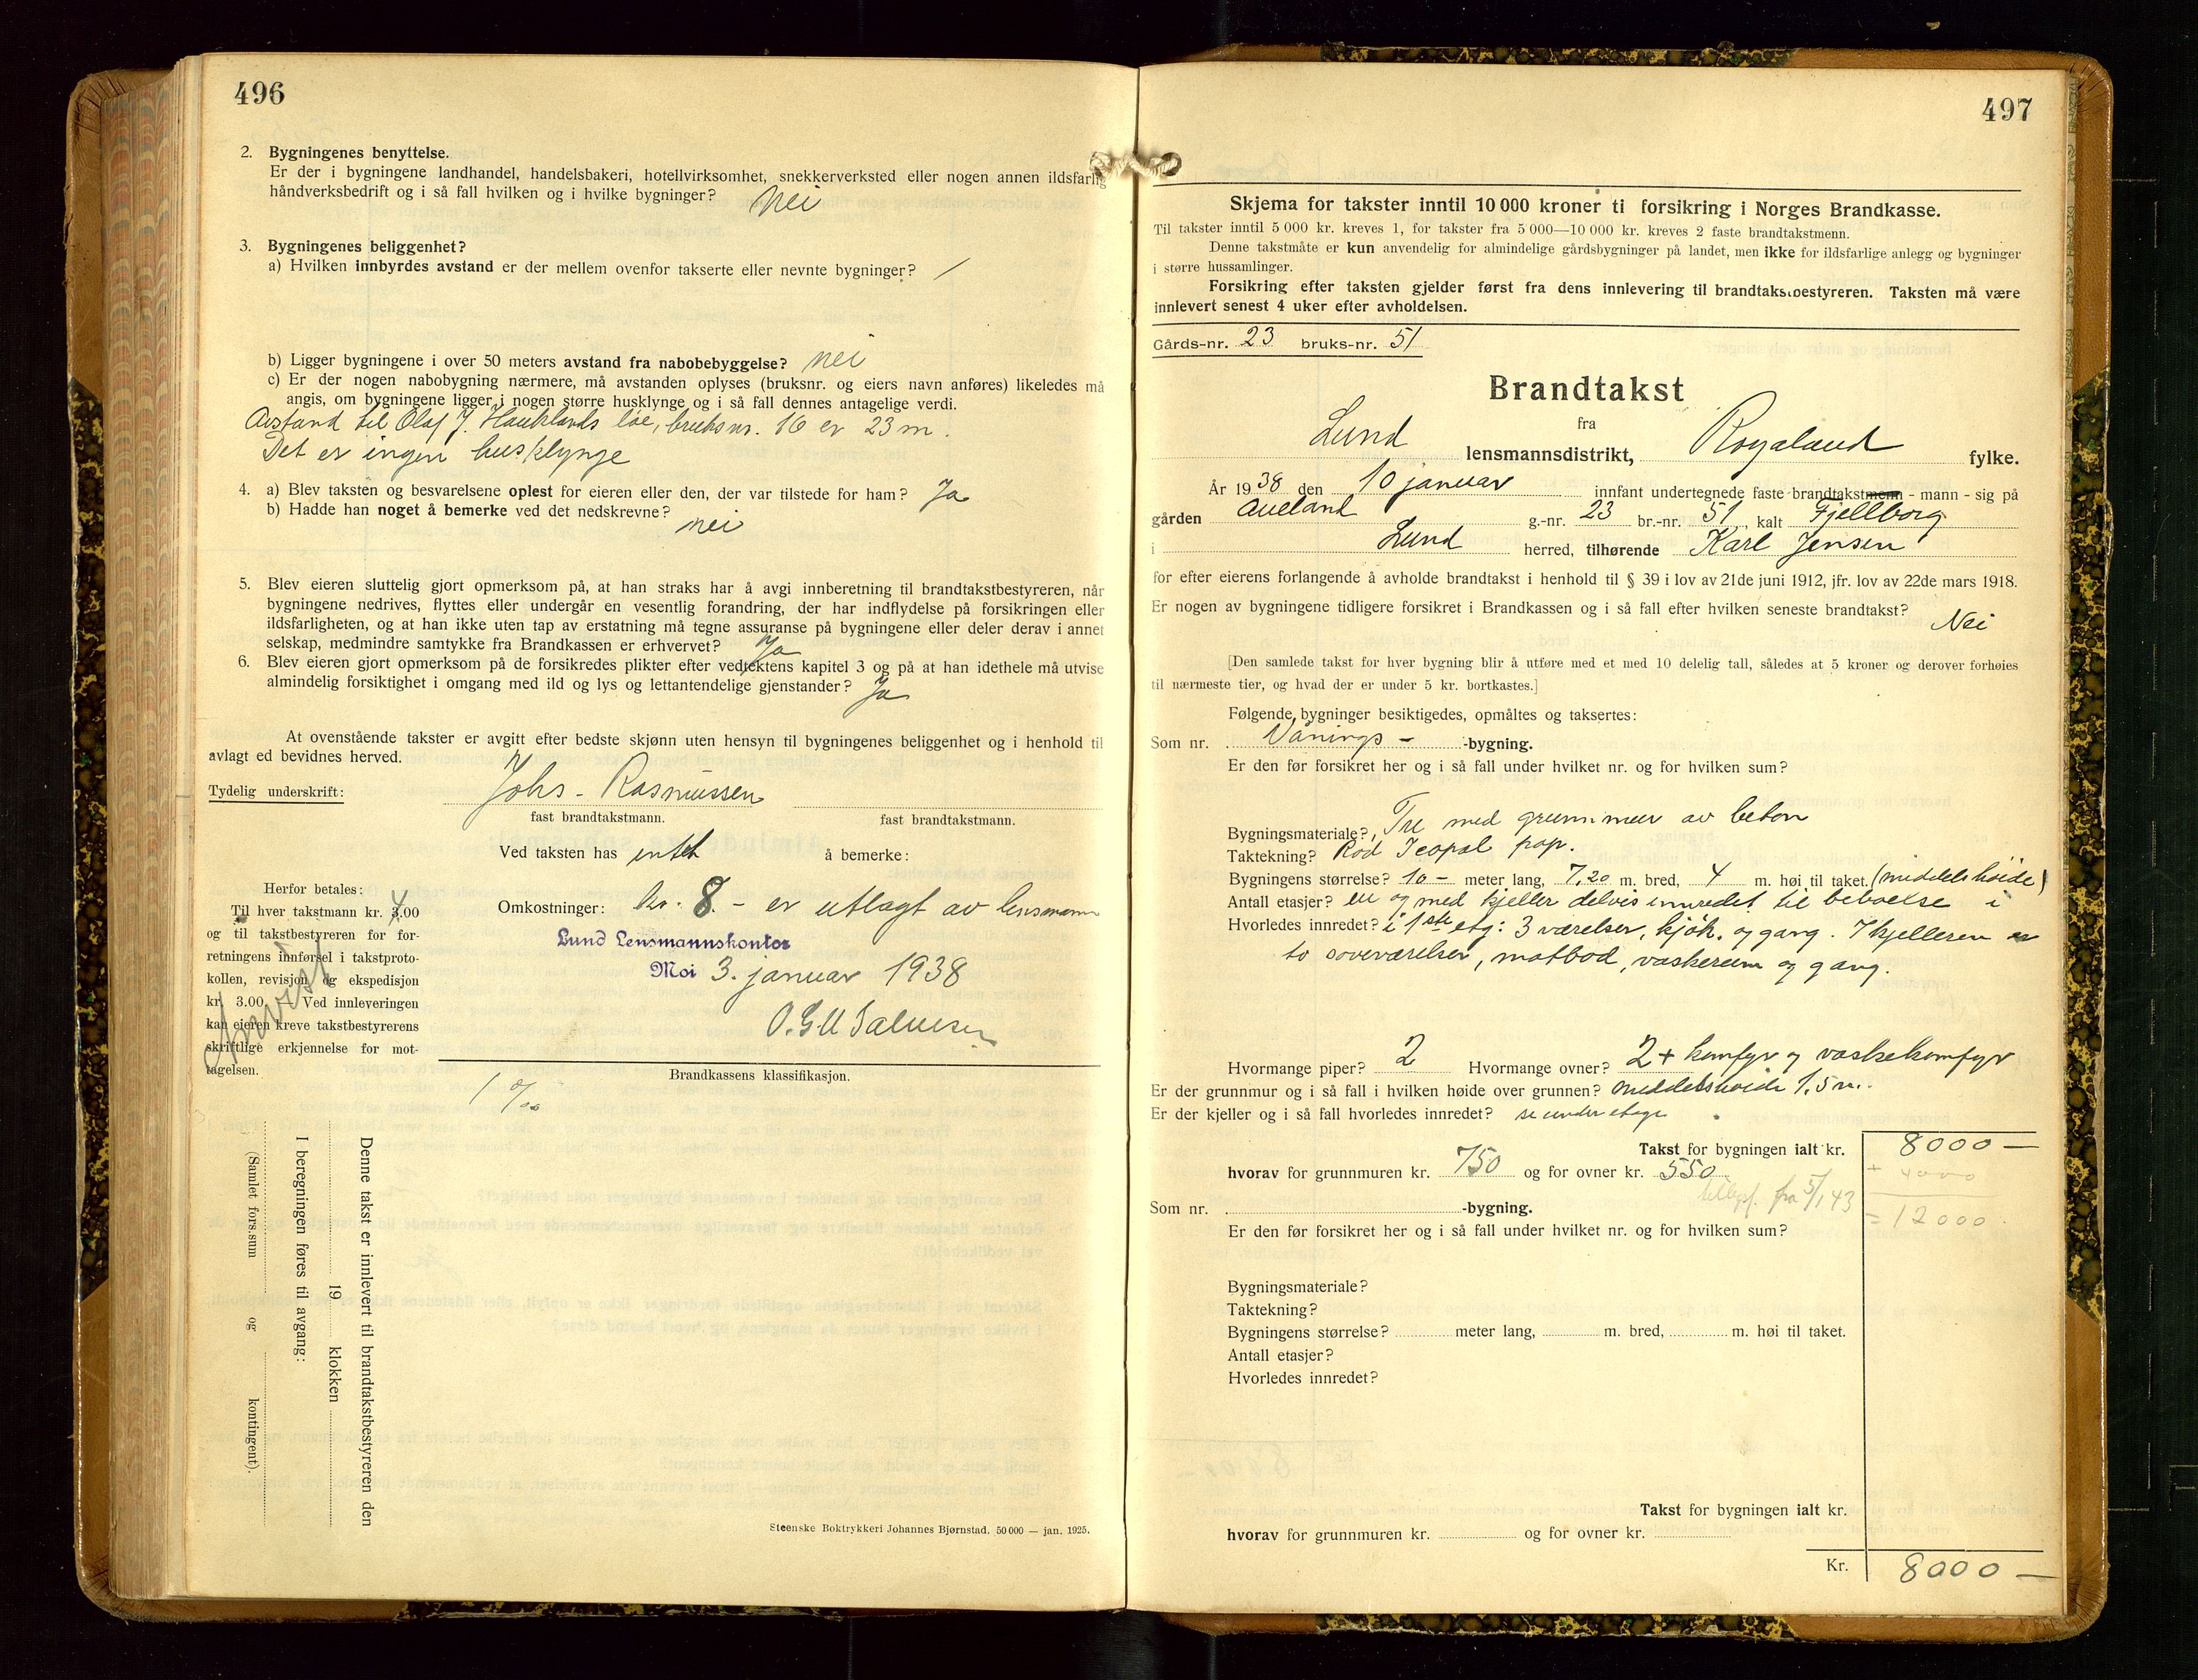 496
2. Bygningenes benyttelse.
Er der i bygningene landhandel, handelsbakeri, hotellvirksomhet, snekkerverksted eller nogen annen ildsfarlig
håndverksbedrift og i så fall hvilken og i hvilke bygninger? Nei
3. Bygningenes beliggenhet?
a) Hvilken innbyrdes avstand er der mellem ovenfor takserte eller nevnte bygninger? /
b) Ligger bygningene i over 50 meters avstand fra nabobebyggelse? nei
c) Er der nogen nabobygning nærmere, må avstanden oplyses (bruksnr. og eiers navn anføres) likeledes må
angis, om bygningene ligger i nogen større husklynge og i så fall dennes antagelige verdi.
Avstand til Olaf J. Hauklands løe, bruksnr. 16 er 23 m.
Det er ingen husklynge
4. a) Blev taksten og besvarelsene oplest for eieren eller den, der var tilstede for ham? Ja
b) Hadde han noget å bemerke ved det nedskrevne? nei
5. Blev eieren sluttelig gjort opmerksom på, at han straks har å avgi innberetning til brandtakstbestyreren, når
bygningene nedrives, flyttes eller undergår en vesentlig forandring, der har indflydelse på forsikringen eller
ildsfarligheten, og at han ikke uten tap av erstatning må tegne assuranse på bygningene eller deler derav i annet
selskap, medmindre samtykke fra Brandkassen er erhvervet? Ja
6. Blev eieren gjort opmerksom på de forsikredes plikter efter vedtektens kapitel 3 og på at han idethele må utvise
almindelig forsiktighet i omgang med ild og lys og lettantendelige gjenstander? Ja
At ovenstående takster er avgitt efter bedste skjønn uten hensyn til bygningenes beliggenhet og i henhold til
avlagt ed bevidnes herved.
Tydelig underskrift: Johs. Rasmussen
fast brandtakstmann. fast brandtakstmann.
Ved taksten has intet å bemerke:
Omkostninger: kr. 8.- er utlagt av lensmann
Lund Lensmannskontor
Moi 3. januar 1938
Herfor betales:
Til hver takstmann kr. 3,00 4
og til takstbestyreren for for-
retningens innførsel i takstproto-
kollen, revisjon og ekspedisjon
kr. 3.00. Ved innleveringen
kan eieren kreve takstbestyrerens
skriftlige erkjennelse for mot-
tagelsen.
Brandkassens klassifikasjon.
1 ‰
Denne takst er innlevert til brandtakstbestyreren den
19 klokken
I beregningen føres til avgang:
(Samlet fors.sum og kontingent).
Steenske Boktrykkeri Johannes Bjørnstad. 50 000 — jan. 1925.
497
Skjema for takster inntil 10 000 kroner ti forsikring i Norges Brandkasse.
Til takster inntil 5 000 kr. kreves 1, for takster fra 5 000—10 000 kr. kreves 2 faste brandtakstmenn.
Denne takstmåte er kun anvendelig for almindelige gårdsbygninger på landet, men ikke for ildsfarlige anlegg og bygninger
i større hussamlinger.
Forsikring efter taksten gjelder først fra dens innlevering til brandtakstbestyreren. Taksten må være
innlevert senest 4 uker efter avholdelsen.
Gårds-nr. 23 bruks-nr. 51
Brandtakst
fra
Lund lensmannsdistrikt, Rogaland fylke.
År 1938 den 10 januar innfant undertegnede faste brandtakstmenn - mann - sig på
gården Aueland g.-nr. 23 br.-nr. 51, kalt Fjellborg
i Lund herred, tilhørende Karl Jensen
for efter eierens forlangende å avholde brandtakst i henhold til § 39 i lov av 21de juni 1912, jfr. lov av 22de mars 1918.
Er nogen av bygningene tidligere forsikret i Brandkassen og i så fall efter hvilken seneste brandtakst? Nei
[Den samlede takst for hver bygning blir å utføre med et med 10 delelig tall, således at 5 kroner og derover forhøies
til nærmeste tier, og hvad der er under 5 kr. bortkastes.]
Følgende bygninger besiktigedes, opmåltes og taksertes:
Som nr. Vånings - -bygning.
Er den før forsikret her og i så fall under hvilket nr. og for hvilken sum?
Bygningsmateriale? Tre med grunnmur av beton
Taktekning? Rød Icopal pap.
Bygningens størrelse? 10 - meter lang, 7,20 m. bred, 4 m. høi til taket. (middelshøide)
Antall etasjer? en og med kjeller delvis innredet til beboelse i
Hvorledes innredet? i 1ste etg: 3 værelser, kjøk. og gang. I kjelleren er
to soveværelser, matbod, vaskerum og gang.
Hvormange piper? 2 Hvormange ovner? 2 + komfyr og vaskekomfyr
Er der grunnmur og i så fall i hvilken høide over grunnen? middelshøide 1,5 m.
Er der kjeller og i så fall hvorledes innredet? se under etage
Takst for bygningen ialt kr. 8000 —
hvorav for grunnmuren kr. 750 og for ovner kr. 550
+ 4000
tillegsf. fra 5/1 43
= 12000
Som nr. -bygning.
Er den før forsikret her og i så fall under hvilket nr. og for hvilken sum?
Bygningsmateriale?
Taktekning?
Bygningens størrelse? meter lang, m. bred, m. høi til taket.
Antall etasjer?
Hvorledes innredet?
Takst for bygningen ialt kr.
hvorav for grunnmuren kr. og for ovner kr.
Kr. 8000 —